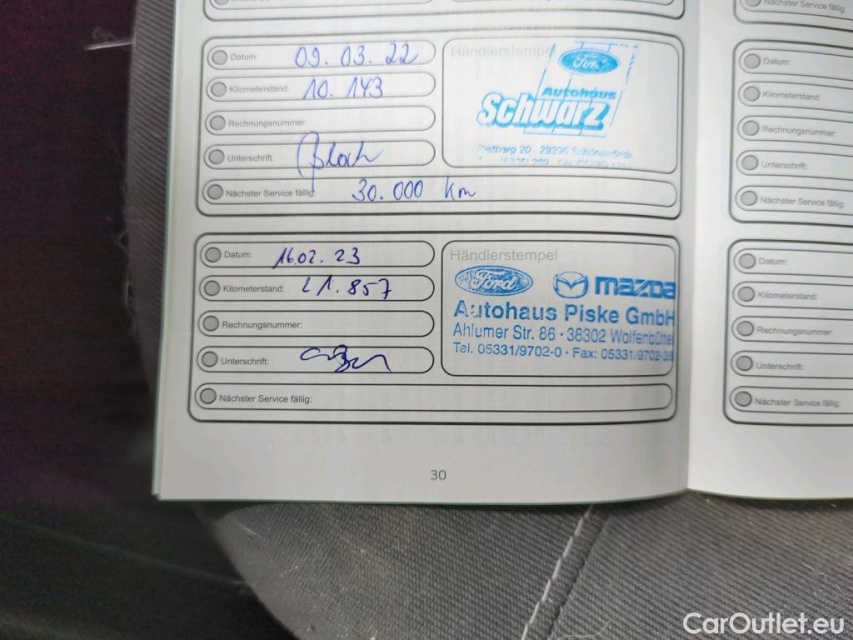 Datum: 09.03.22
Kilometerstand: 10.143
Rechnungsnummer:
Unterschrift:
Nächster Service fällig: 30.000 km
Händlerstempel
Ford
Autohaus
Schwarz
Datum: 16.02.23
Kilometerstand: 21.857
Rechnungsnummer:
Unterschrift:
Nächster Service fällig:
Händlerstempel
Ford mazda
Autohaus Piske GmbH
Ahlumer Str. 86 · 38302 Wolfenbüttel
Tel. 05331/9702-0 · Fax: 05331/9702-
30
Nächster Service fällig:
Datum:
Kilometerstand:
Rechnungsnummer:
Unterschrift:
Nächster Service fällig:
Datum:
Kilometerstand:
Rechnungsnummer:
Unterschrift:
Nächster Service fällig:
CarOutlet.eu